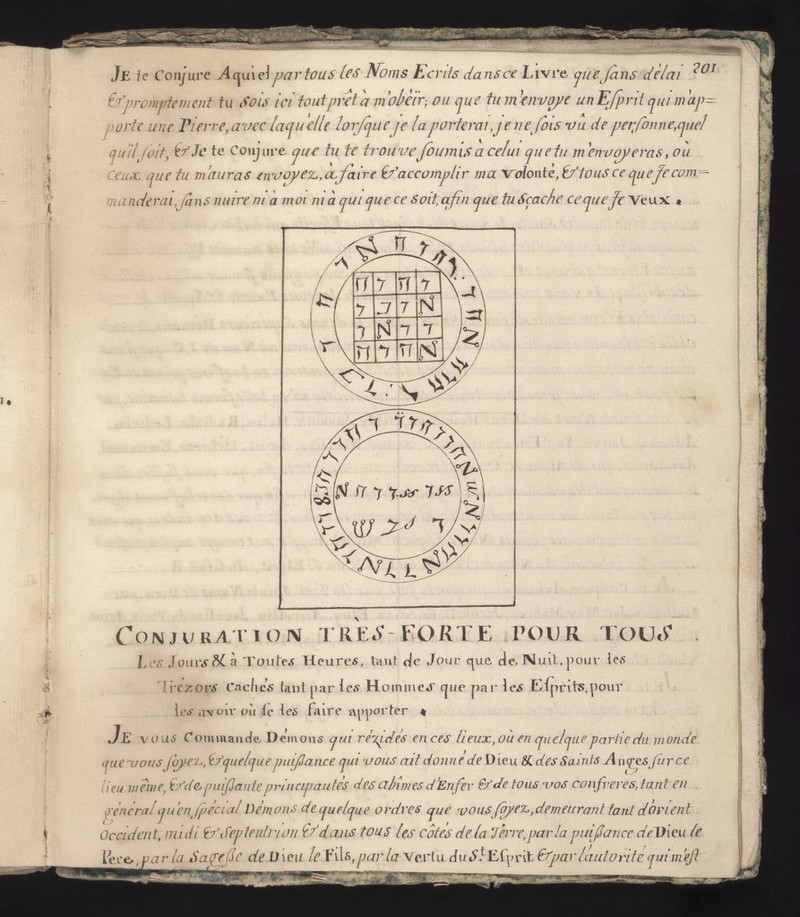 201
JE te Conjure Aquiel par tous les Noms Ecrits dans ce Livre que sans délai
& promptement tu sois ici tout prêt à m'obéir, ou que tu m'envoye un Esprit qui m'ap=
porte une Pierre, avec laquelle lorsque je la porterai, je ne sois vû de personne, quel
qu'il soit, & Je te Conjure que tu te trouve soumis à celui que tu m'envoyeras, où
Ceux que tu m'auras envoyez, à faire & accomplir ma volonté, & tous ce que Je com=
manderai, sans nuire ni à moi ni à qui que ce soit, afin que tu Sçache ce que Je veux.
CONJURATION TRÈS-FORTE POUR TOUS
Les Jours & à Toutes Heures, tant de Jour que de Nuit, pour les
Trézors Cachés tant par les Hommes que par les Esprits, pour
les avoir où se les faire apporter
JE vous Commande Démons qui rézidés en ces lieux, où en quelque partie du monde
que vous soyez, & quelque puissance qui vous ait donné de Dieu & des Saints Anges sur ce
lieu même, & de puissante principautés des abimes d'Enfer & de tous vos confreres, tant en
général qu'en spécial Démons de quelque ordres que vous soyez, demeurant tant d'orient
Occident, midi & septentrion & dans tous les côtés de la Terre, par la puissance de Dieu le
Pere, par la Sagesse de Dieu le Fils, par la vertu du St. Esprit & par l'autorité qui m'est